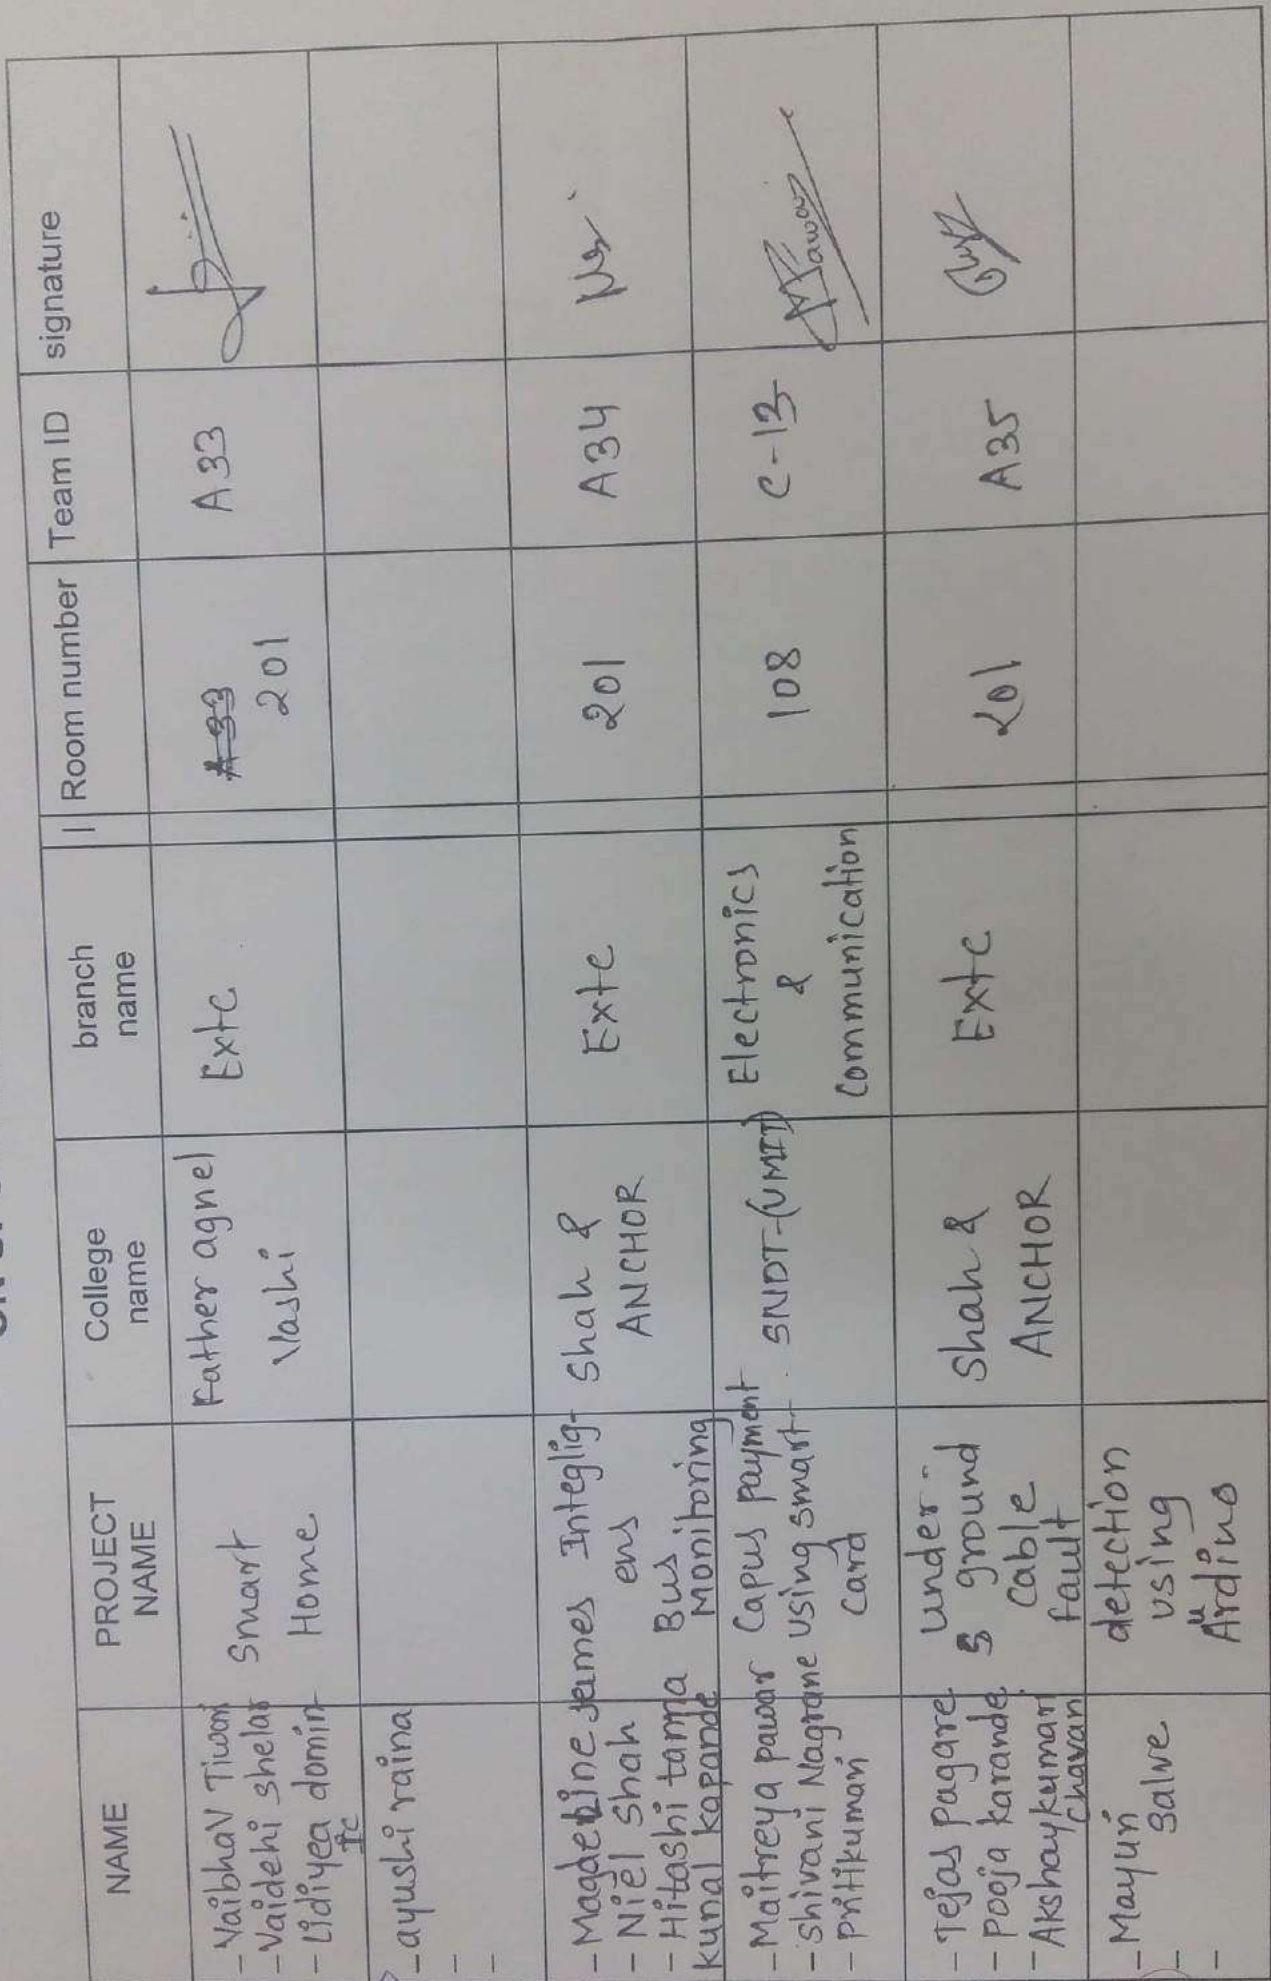 NAME
PROJECT NAME
College name
branch name
Room number
Team ID
signature
- Vaibhav Tiwari
- Vaidehi shelar
- Lidiyea dominic
Smart
Home
Father agnel
Vashi
Extc
A33
201
A33
- ayushi raina
-
-
- Magdeline James
- Niel Shah
- Hitashi tamna
kunal kapande
Integlig-
ens
Bus
Monitoring
Shah &
ANCHOR
Extc
201
A34
- Maitreya pawar
- Shivani Nagrane
- pritikumari
Capus payment
using smart
card
SNDT-(UMIT)
Electronics
&
Communication
108
C-13
Pawar
- Tejas pagare
- Pooja karande
- Akshaykumar
Chavan
under-
ground
Cable
fault
Shah &
ANCHOR
Extc
201
A35
- Mayuri
Salve
-
-
detection
using
Ardino